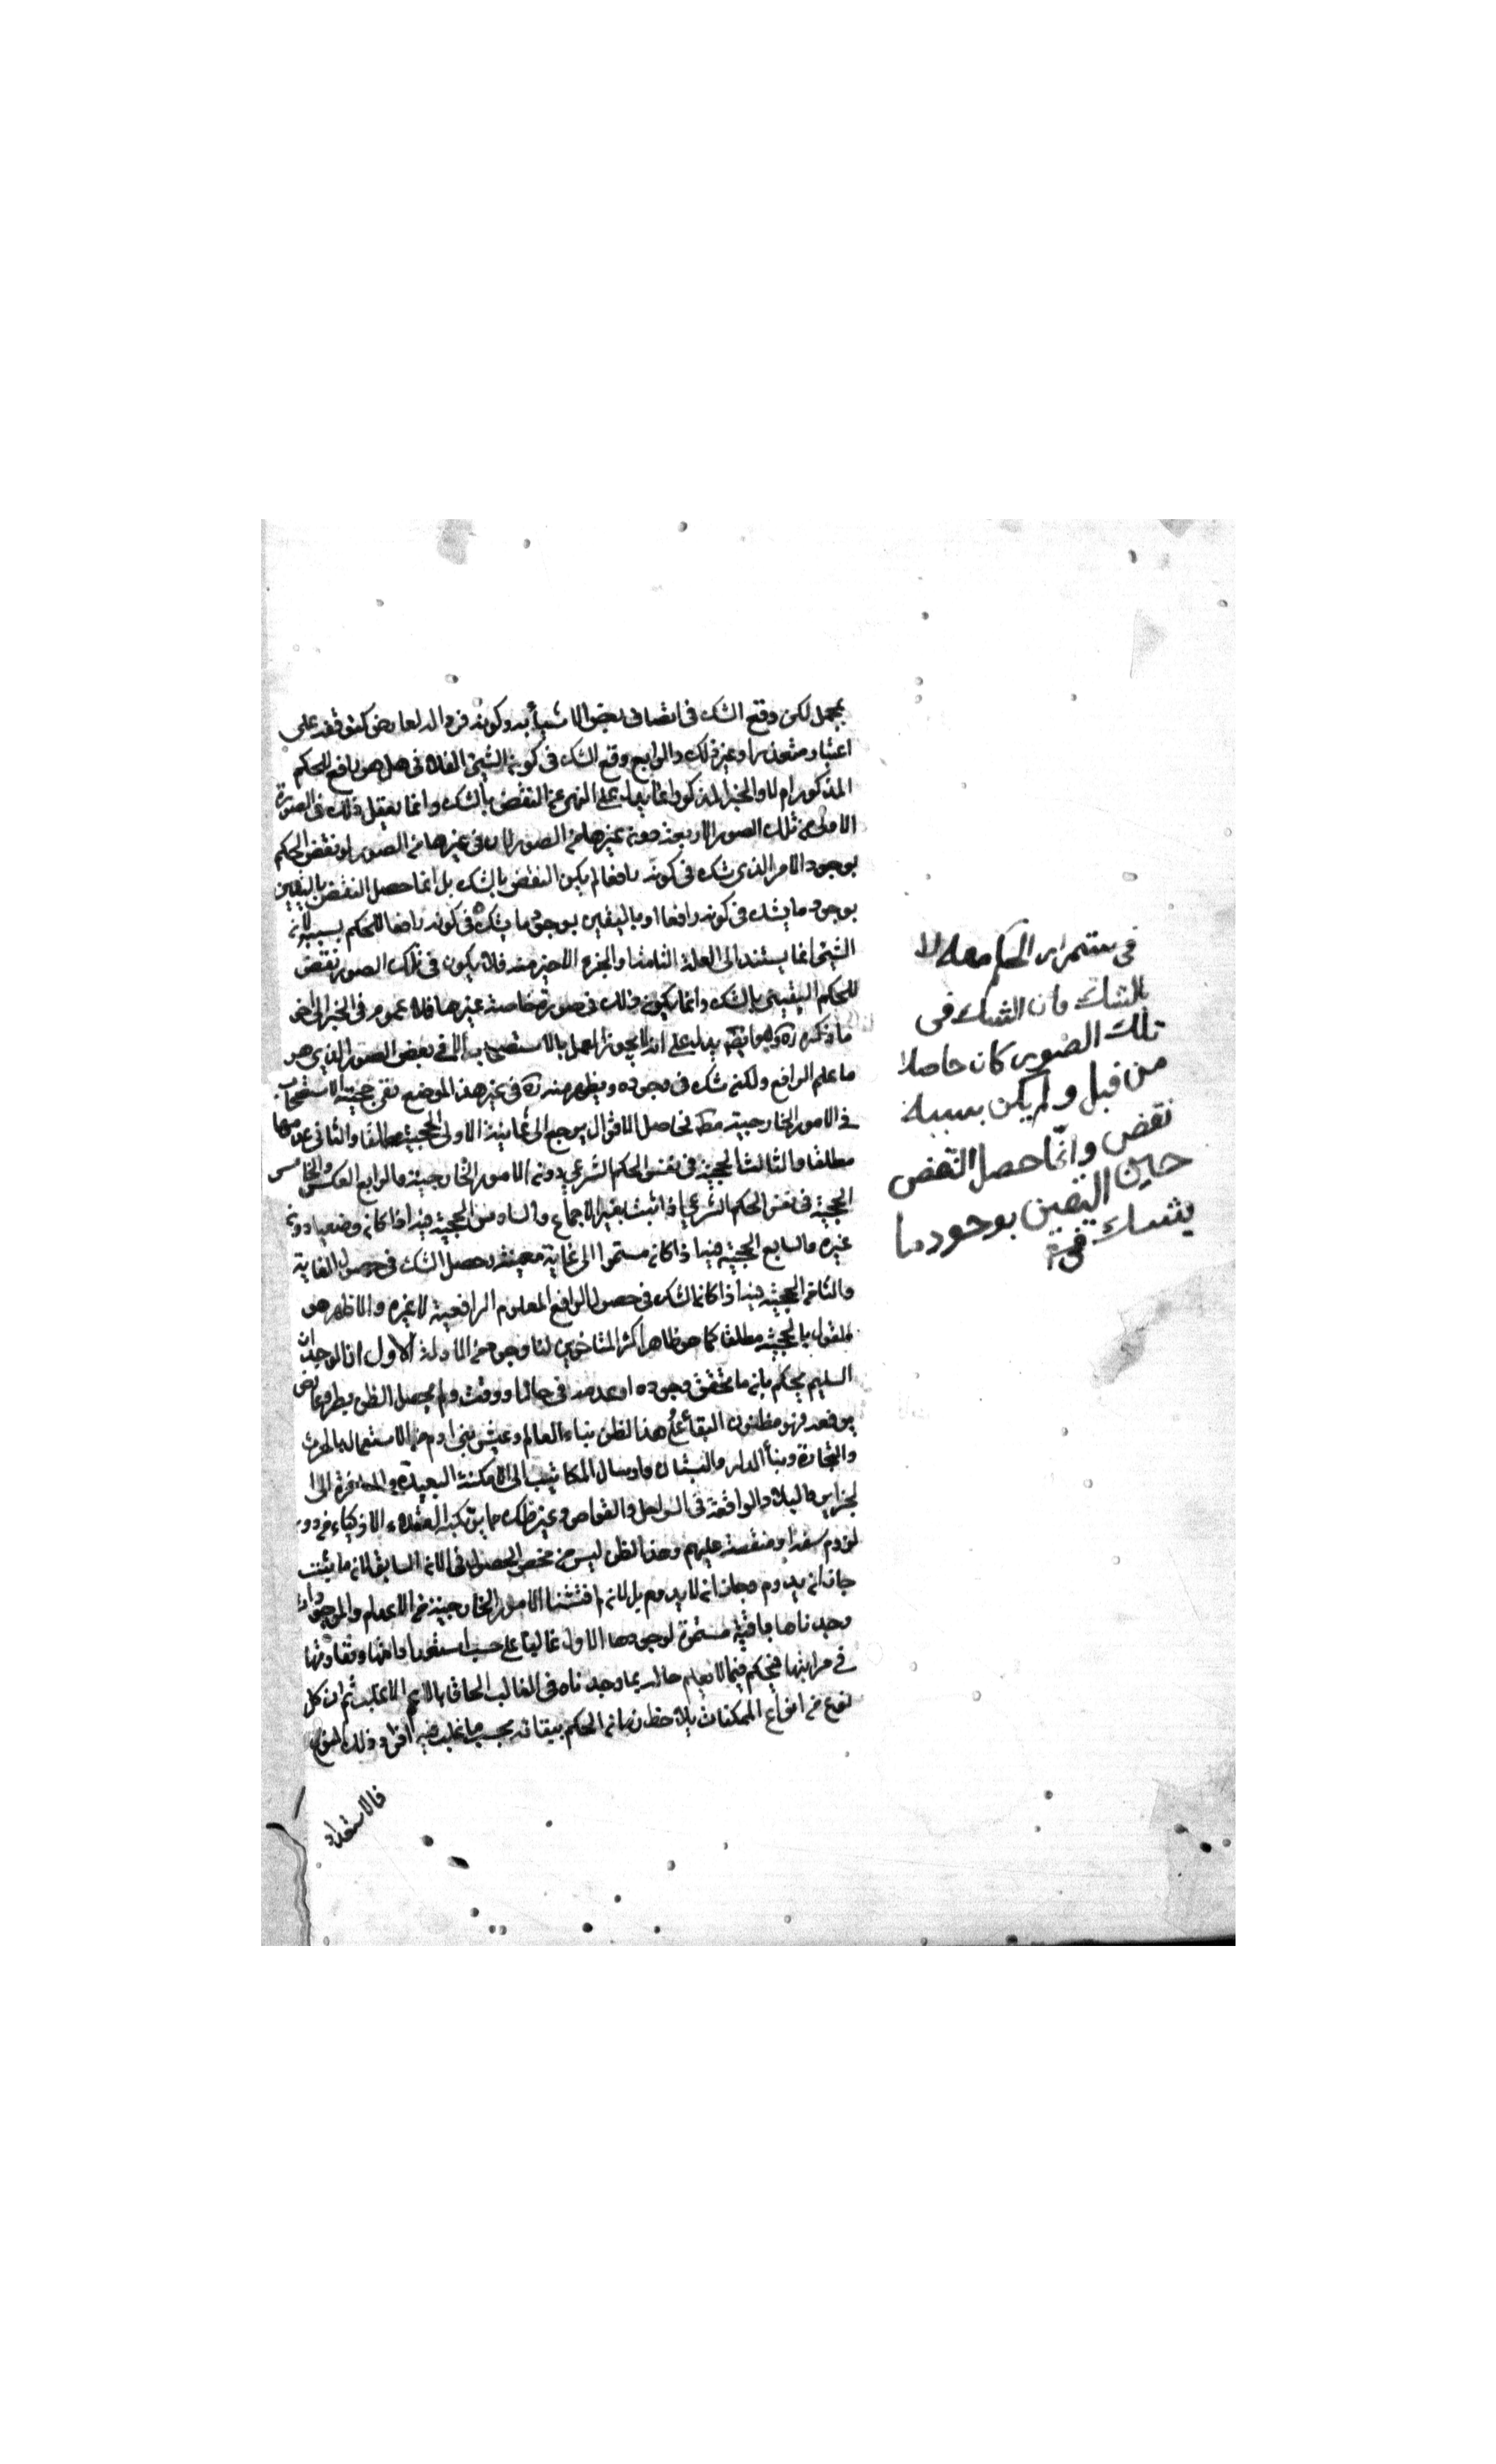 مجمل لكن وقع الشك في اتصاف بعض الاشياء به وكونه فردا له لعارض كتوقفه على
اعتبار متعذر او غير ذلك والرابع وقع الشك في كون الشيئ الفلاني هل هو رافع للحكم
المذكور ام لا والخبر المذكور انما يدل على النهي عن النقض بالشك وانما يعقل ذلك في الصورة
الاولى من تلك الصور الاربعة دون غيرها من الصور لان في غيرها من الصور لو نقض الحكم
بوجود الامر الذي شك في كونه رافعا لم يكن النقض بالشك بل انما حصل النقض باليقين
بوجود ما يشك في كونه رافعا او باليقين بوجود ما يشك في كونه رافعا للحكم بسببه لان
الشيئ انما يستند الى العلة التامة او الجزء الاخير منه فلا يكون في تلك الصور نقض
للحكم اليقيني بالشك وانما يكون ذلك في صورة خاصة غيرها فلا عموم في الخبر الى اخر
ما ذكره ره وهو ايضا يدل على انه لا يجوز العمل بالاستصحاب الا في بعض الصور الذي هو
ما علم الرافع ولكنه شك في وجوده ويظهر منه ره في غير هذا الموضع نفي حجية الاستصحاب
في الامور الخارجية مطه فحاصل الاقوال يرجع الى ثمانية الاولى الحجية مطلقا والثاني عدمها
مطلقا والثالث الحجية في نفس الحكم الشرعي دون الامور الخارجية والرابع العكس والخامس
الحجية في نفس الحكم الشرعي اذا ثبت بغير الاجماع والسادس الحجية فيه اذا كان وضعيا دون
غيره والسابع الحجية فيما اذا كان مستمرا الى غاية معينة وحصل الشك في حصول الغاية
والثامن الحجية فيه اذا كان الشك في حصول الرافع المعلوم الرافعية لا غيره والاظهر هو
القول بالحجية مطلقا كما هو ظاهر اكثر المتاخرين لنا وجوه من الادلة الاول ان الوجدان
السليم يحكم بان ما تحقق وجوده او عدمه في حال او وقت ولم يحصل الظن بطرو عارض
يرفعه فهو مظنون البقاء وعلى هذا الظن بناء العالم وعيش بني ادم من الاشتغال بالحرث
والتجارة وبناء الدار والبستان وارسال المكاتيب الى الامكنة البعيدة والمسافرة الى
الجزاير والبلاد الواقعة في السواحل والقواص وغير ذلك مما يرتكبه العقلاء الاذكياء من دون
لزوم سفه او منقصة عليهم وهذا الظن ليس من محض الحصول في الان السابق لان ما ثبت
جاز ان يدوم وجاز ان لا يدوم بل لانه لما فتشنا الامور الخارجية من الاعدام والموجودات
وجدناها باقية مستمرة لوجودها الاول غالبا على حسب استعداداتها وتفاوتها
في مراتبها فيحكم فيما لا نعلم حاله بما وجدناه في الغالب الحاقا بالاعم الاغلب ثم ان كل
نوع من انواع الممكنات يلاحظ زمان الحكم ببقائه بحسب ما غلب فيه افراد ذلك النوع
فالاستعداد
في ستمرار الحكم معه لا
بالشك فان الشك في
تلك الصور كان حاصلا
من قبل ولم يكن بسببه
نقض وانما حصل النقض
حين اليقين بوجود ما
يشك فيه